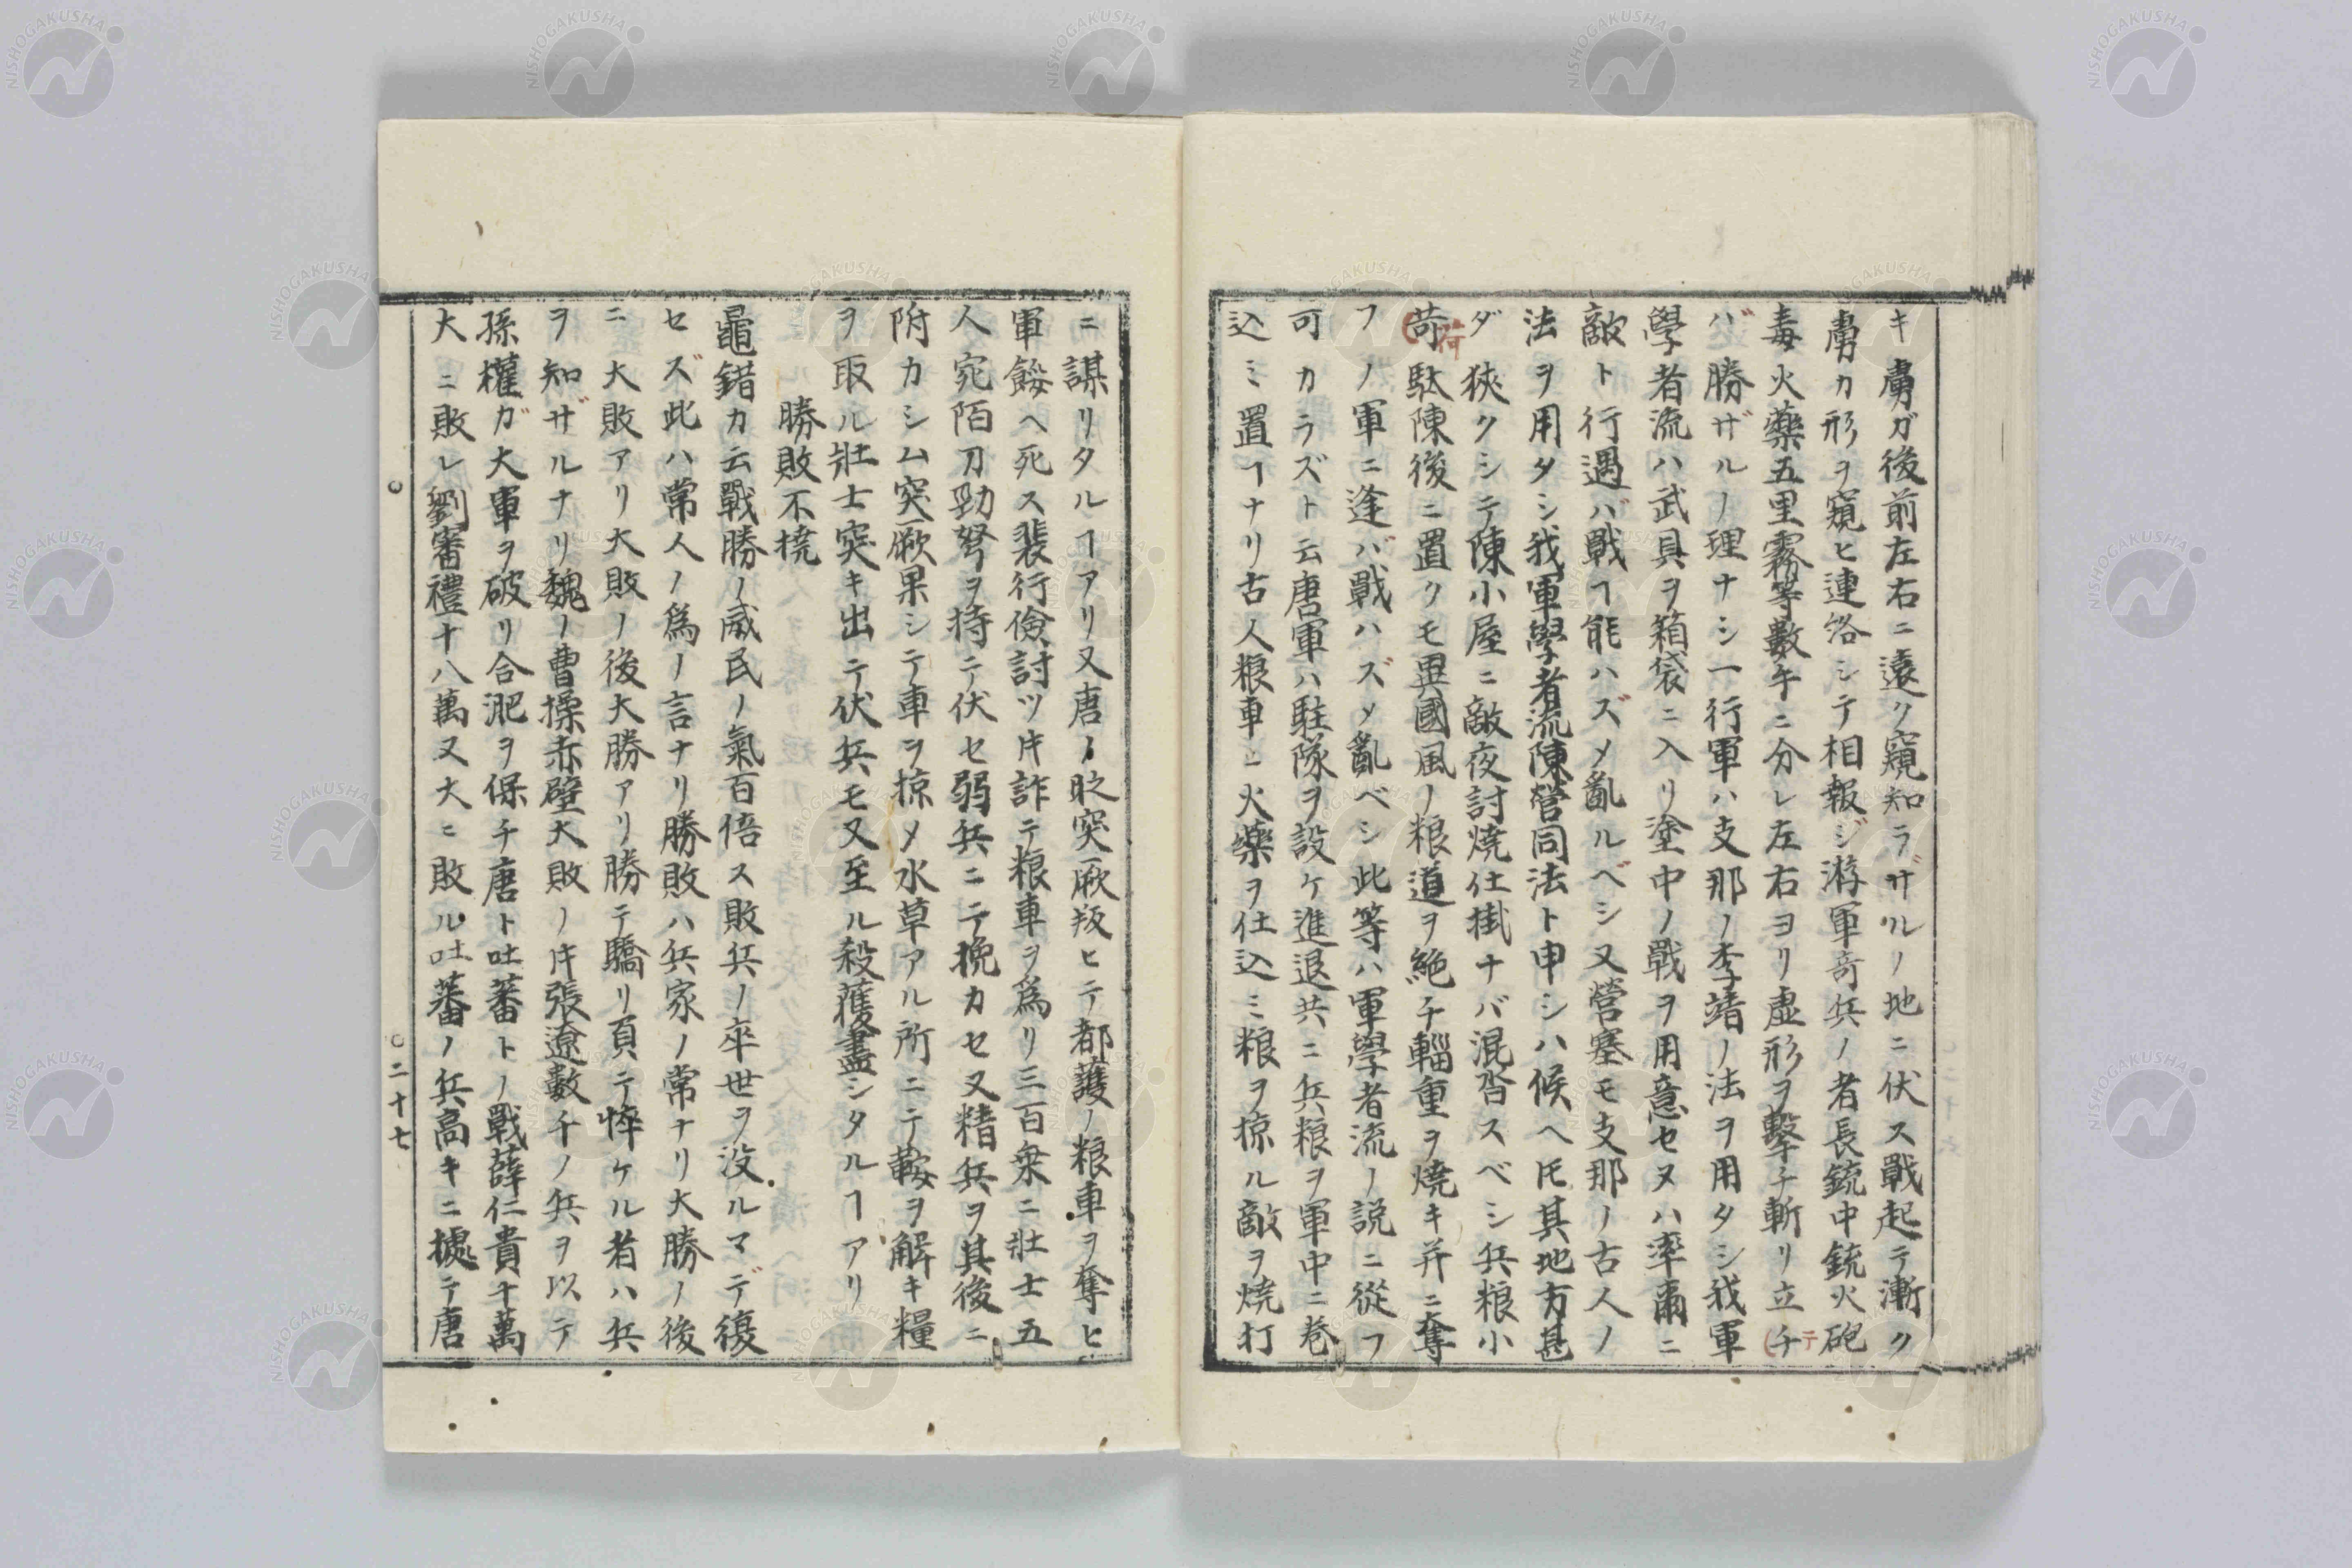 キ虜ガ後前左右ニ遠ク窺知ラザルノ地ニ伏ス戰起テ漸ク
虜カ形ヲ窺ヒ連絡シテ相報ジ游軍奇兵ノ者長銃中銃火砲
毒火藥五里霧等數年ニ分レ左右ヨリ虚形ヲ擊チ斬リ立チ
テ
バ勝ザルノ理ナシ一行軍ハ支那ノ李靖ノ法ヲ用タシ我軍
學者流ハ武具ヲ箱袋ニ入リ塗中ノ戰ヲ用意セヌハ率爾ニ
敵ト行遇バ戰ヿ能ハズメ亂ルベシ又營塞モ支那ノ古人ノ
法ヲ用タシ我軍學者流陳營同法ト申シハ候ヘ𪜈其地方甚
ダ狹クシテ陳小屋ニ敵夜討燒仕掛ナバ混沓スベシ兵粮小
荷
苛駄陳後ニ置クモ異國風ノ粮道ヲ絶チ輜重ヲ燒キ并ニ奪
フノ軍ニ逢バ戰ハズメ亂ベシ此等ハ軍學者流ノ説ニ從フ
可カラズト云唐軍ハ駐隊ヲ設ケ進退共ニ兵粮ヲ軍中ニ巻
込ミ置ヿナリ古人粮車ニ火藥ヲ仕込ミ粮ヲ掠ル敵ヲ燒打
ニ謀リタルヿアリ又唐ノ時突厥叛ヒテ都護ノ粮車ヲ奪ヒ
軍餒ヘ死ス裴行儉討ツ時詐テ粮車ヲ爲リ三百乗ニ壯士五
人宛陌刀勁弩ヲ持テ伏セ弱兵ニテ挽カセ又精兵ヲ其後ニ
附カシム突厥果シテ車ヲ掠メ水草アル所ニテ鞍ヲ解キ糧
ヲ取ル壯士突キ出テ伏兵モ又至ル殺獲盡シタルヿアリ
勝敗不撓
鼂錯カ云戰勝ノ威民ノ氣百倍ス敗兵ノ卒世ヲ沒ルマデ復
セズ此ハ常人ノ爲ノ言ナリ勝敗ハ兵家ノ常ナリ大勝ノ後
ニ大敗アリ大敗ノ後大勝アリ勝テ驕リ頁テ悴ケル者ハ兵
ヲ知ザルナリ魏ノ曹操赤壁大敗ノ時張遼數千ノ兵ヲ以テ
孫權ガ大軍ヲ破リ合淝ヲ保チ唐ト吐蕃トノ戰薛仁貴十萬
大ニ敗レ劉審禮十八萬又大ニ敗ル吐蕃ノ兵高キニ據テ唐
二十七